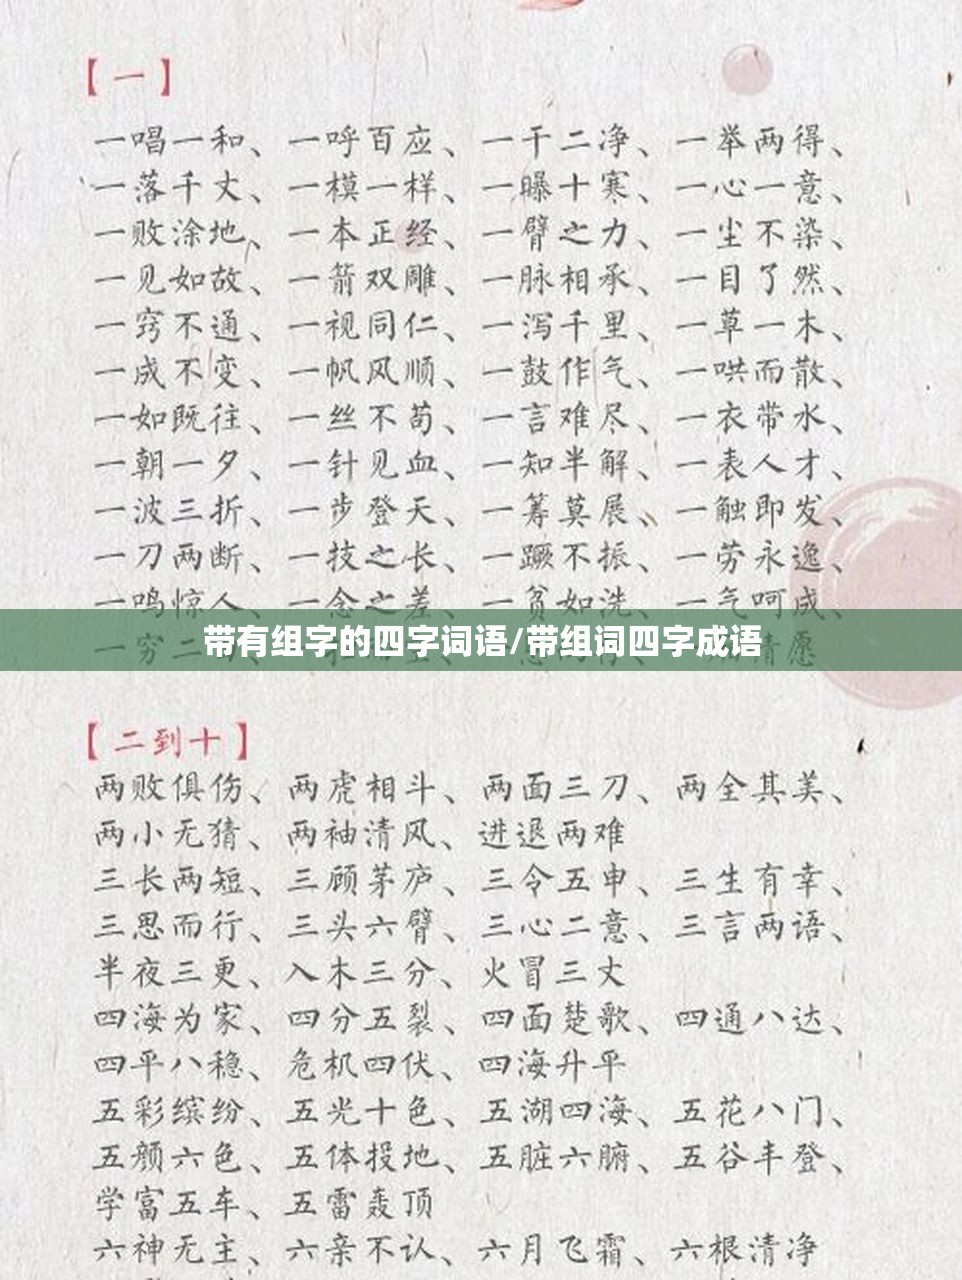 【一】
一唱一和、一呼百应、一干二净、一举两得、
一落千丈、一模一样、一曝十寒、一心一意、
一败涂地、一本正经、一臂之力、一尘不染、
一见如故、一箭双雕、一脉相承、一目了然、
一窍不通、一视同仁、一泻千里、一草一木、
一成不变、一帆风顺、一鼓作气、一哄而散、
一如既往、一丝不苟、一言难尽、一衣带水、
一朝一夕、一针见血、一知半解、一表人才、
一波三折、一步登天、一筹莫展、一触即发、
一刀两断、一技之长、一蹶不振、一劳永逸、
一鸣惊人、一念之差、一贫如洗、一气呵成、
一穷二 情愿
带有组字的四字词语/带组词四字成语
【二到十】
两败俱伤、两虎相斗、两面三刀、两全其美、
两小无猜、两袖清风、进退两难
三长两短、三顾茅庐、三令五申、三生有幸、
三思而行、三头六臂、三心二意、三言两语、
半夜三更、入木三分、火冒三丈
四海为家、四分五裂、四面楚歌、四通八达、
四平八稳、危机四伏、四海升平
五彩缤纷、五光十色、五湖四海、五花八门、
五颜六色、五体投地、五脏六腑、五谷丰登、
学富五车、五雷轰顶
六神无主、六亲不认、六月飞霜、六根清净